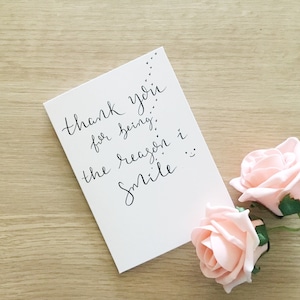 thank you
for being
the reason i
smile